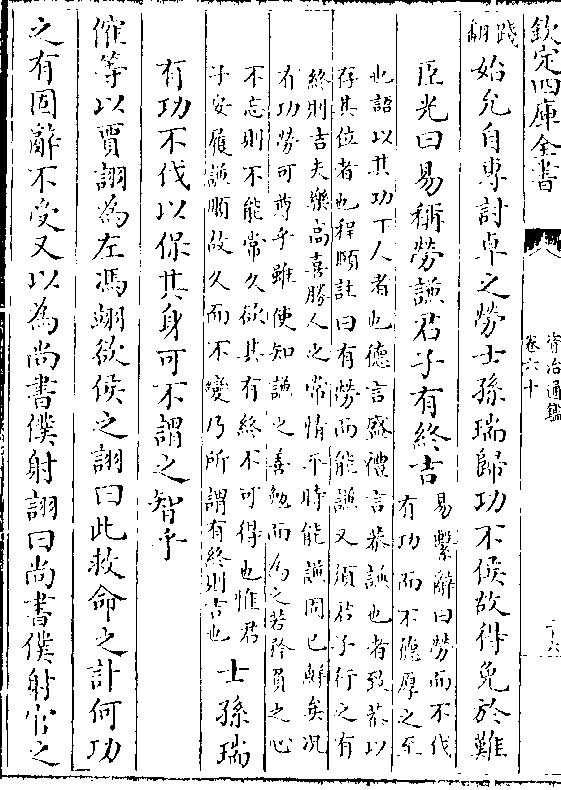 欽定四庫全書
資治通鑑
卷六十
十六
踐
翻
始允自專討卓之勞士孫瑞歸功不侯故得免於難
臣光曰易稱勞謙君子有終吉
易繫辭曰勞而不伐
有功而不德厚之至
也語以其功下人者也德言盛禮言恭謙也者致恭以
存其位者也程頤註曰有勞而能謙又須君子行之有
終則吉夫樂高喜勝人之常情平時能謙固已鮮矣况
有功勞可尊乎雖使知謙之善勉而為之若矜負之心
不忘則不能常久欲其有終不可得也惟君
子安履謙順故久而不變乃所謂有終則吉也
士孫瑞
有功不伐以保其身可不謂之智乎
傕等以賈詡為左馮翊欲侯之詡曰此救命之計何功
之有固辭不受又以為尚書僕射詡曰尚書僕射官之